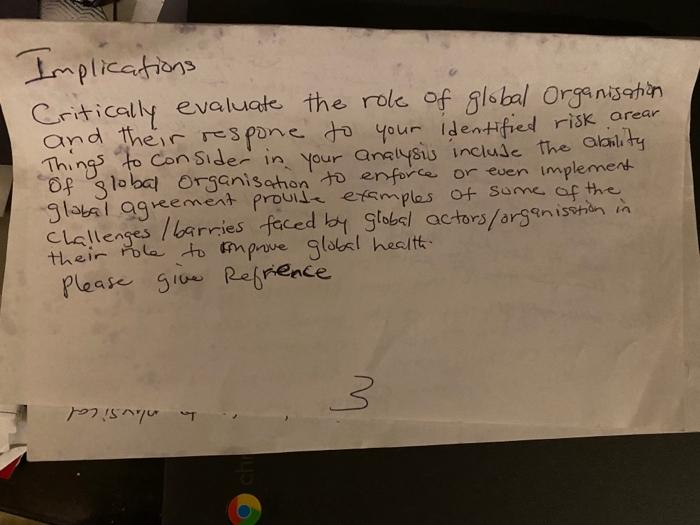 Implications
Critically evaluate the role of global Organisation
and their respone to your identified risk arear
Things to consider in your analysis include the ability
Of global Organisation to enforce or even implement
global agreement provide examples of some of the
Challenges/barries faced by global actors/organisation in
their role to improve global health.
please give Refrence
3
physical
chr